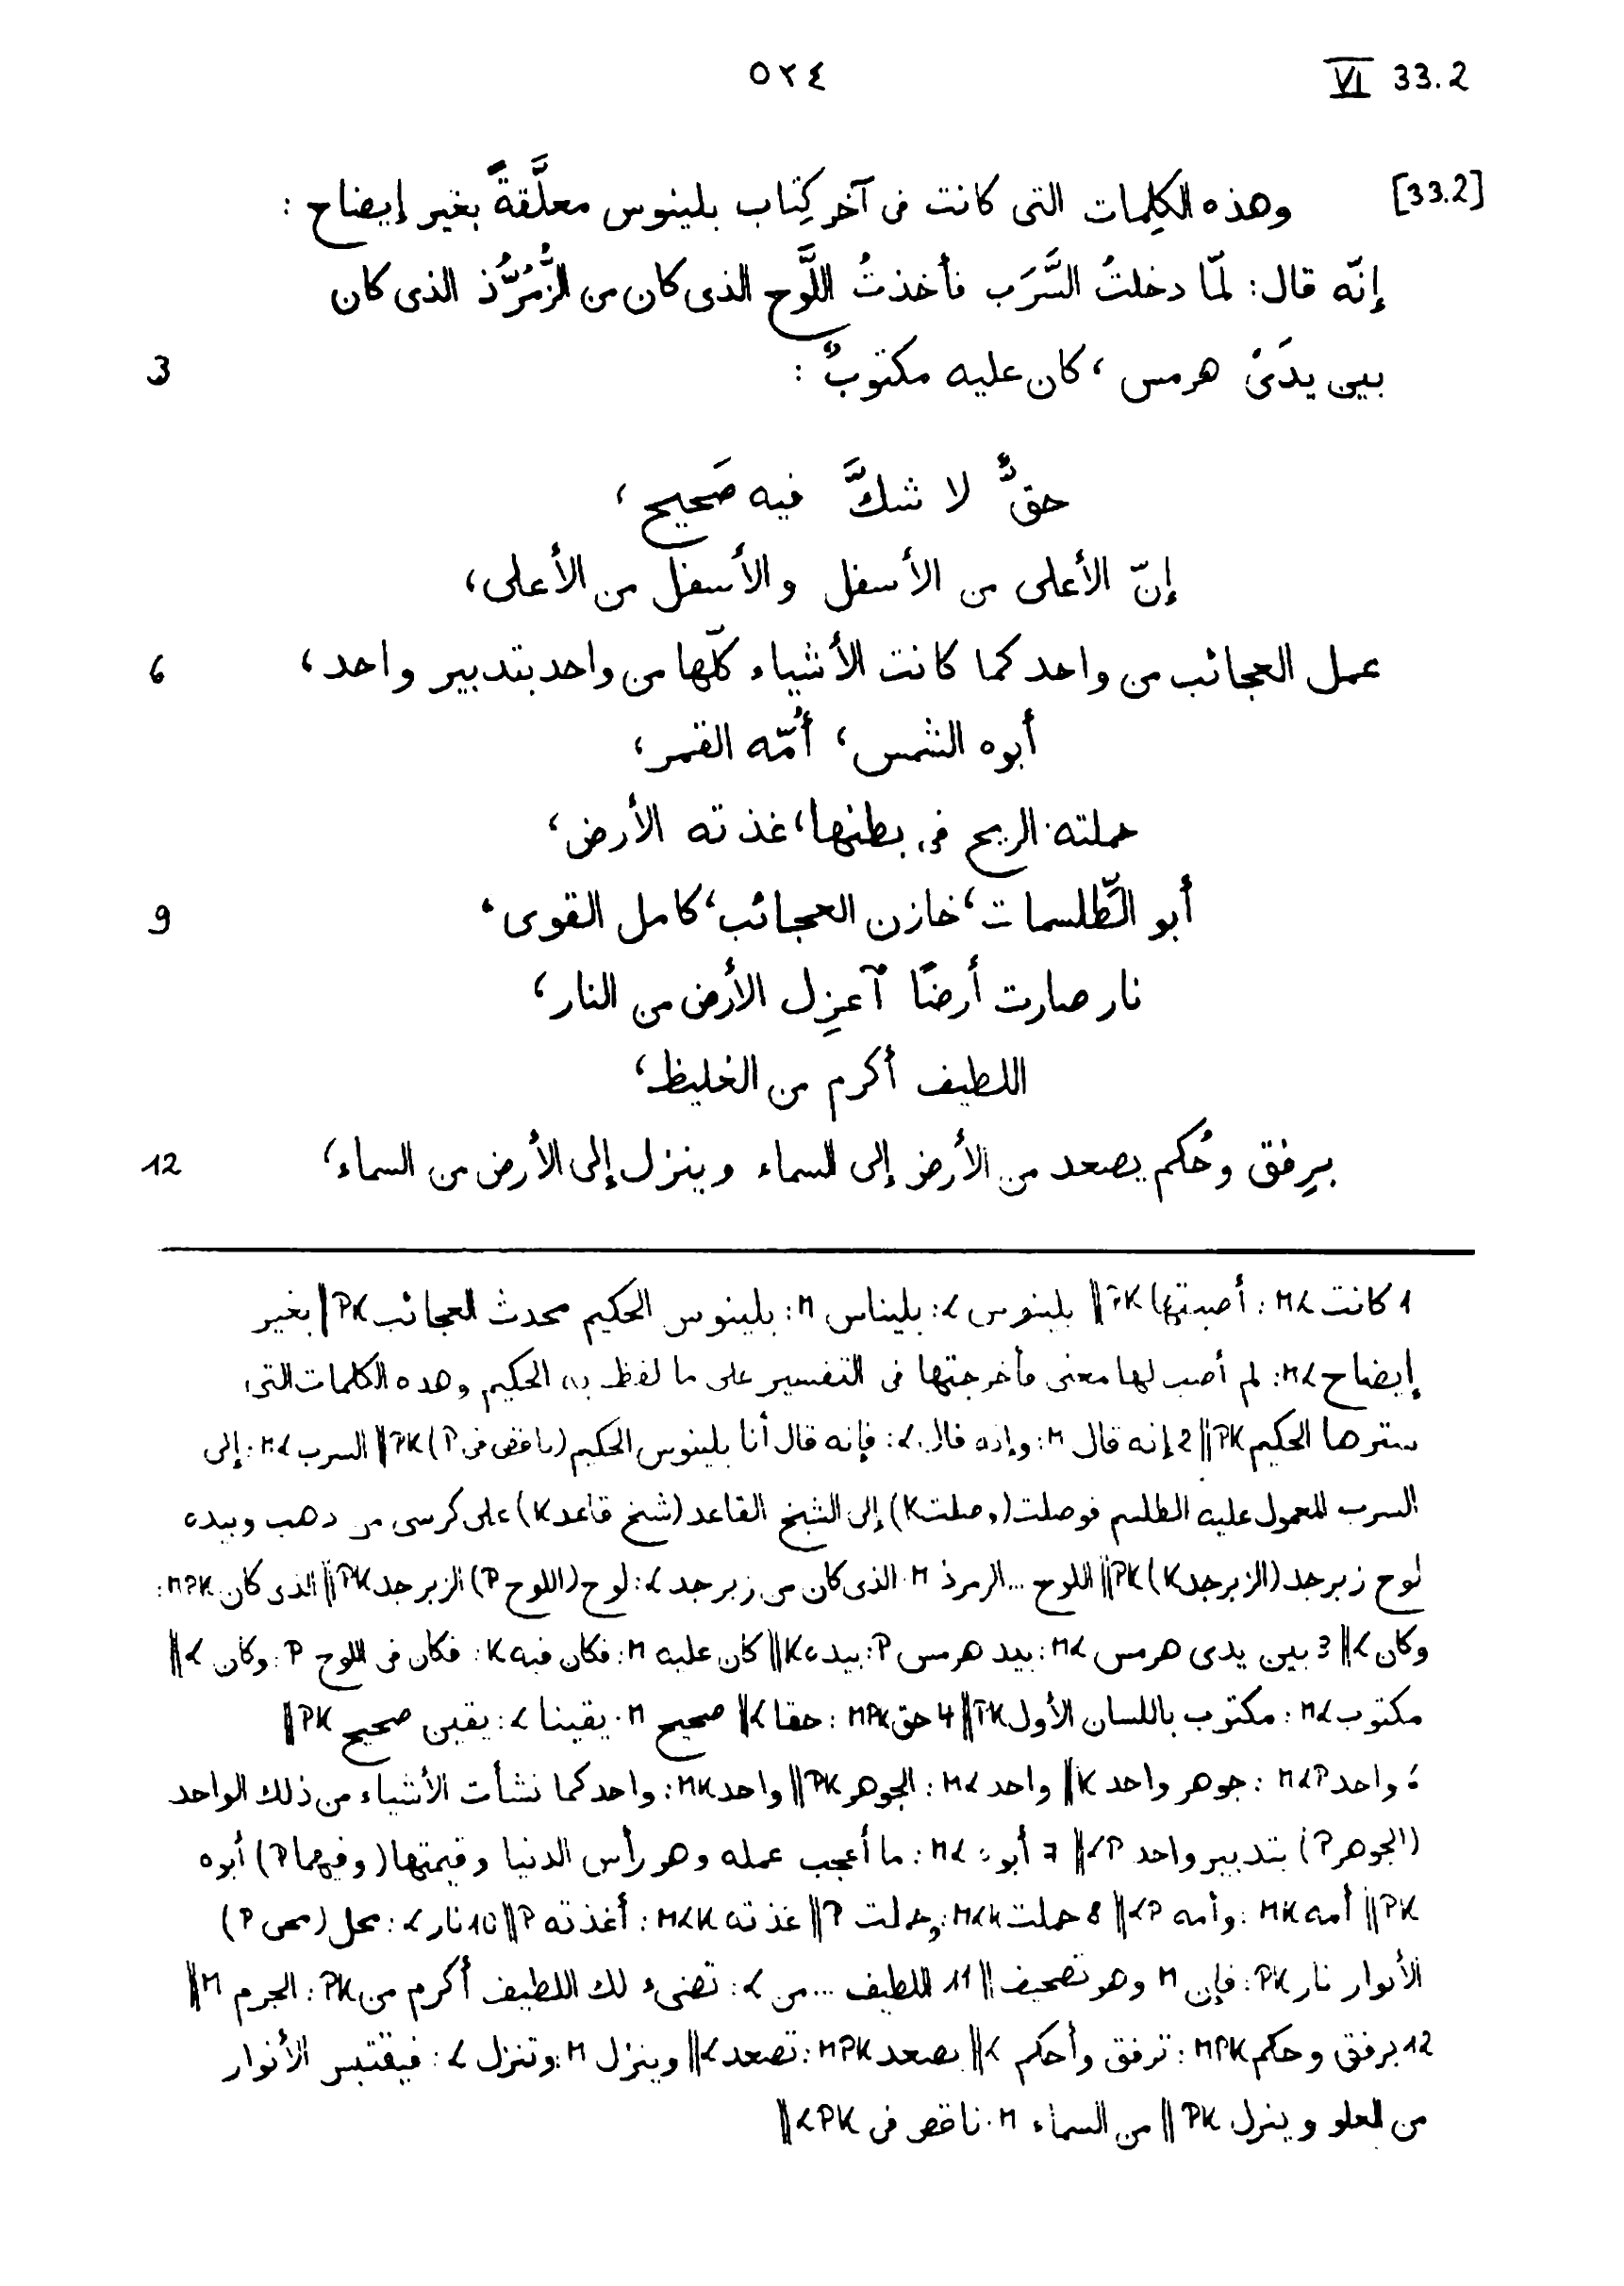 VI 33.2
٥٢٤
[33.2] وهذه الكلِمات التى كانت فى آخر كِتاب بلينوس معلَّقةً بغير إيضاح :
إنّه قال: لمّا دخلتُ السَّرَب فأخذتُ اللَّوح الذى كان من الزُّمُرُّذ الذى كان
بين يدَىْ هرمس ، كان عليه مكتوبٌ : 3
حقٌّ لا شكَّ فيه صَحيح ،
إنّ الأعلى من الأسفل والأسفل من الأعلى،
عمل العجائب من واحد كما كانت الأشياء كلّها من واحد بتدبير واحد، 6
أبوه الشمس، أُمّه القمر،
حملته الريح فى بطنها، غذته الأرض،
أبو الطّلسمات، خازن العجائب، كامل القوى، 9
نار صارت أرضًا آعزِل الأرض من النار،
اللطيف أكرم من الغليظ،
برِفق وحُكم يصعد من الأرض إلى السماء وينزل إلى الأرض من السماء، 12
1 كانت ML : أصبتها PK || بلينوس L: بليناس M: بلينوس الحكيم محدث العجائب PK | بغير
إيضاح ML: لم أصب لها معنى فأخرجتها فى التفسير على ما لفظ به الحكيم وهذه الكلمات التى
سترها الحكيم PK || 2 إنه قال M: وإنه قال L: فإنه قال أنا بلينوس الحكيم (ناقص فى P) PK || السرب ML: إلى
السرب المعمول عليه الطلسم فوصلت (وصلت K) إلى الشيخ القاعد (شيخ قاعد K) على كرسى من ذهب وبيده
لوح زبرجد (الزبرجد K) PK || اللوح ... الزمرذ M: الذى كان من زبرجد L: لوح (اللوح P) الزبرجد PK || الذى كان MPK:
وكان L || 3 بين يدى هرمس ML: بيد هرمس P: بيده K || كان عليه M: فكان فيه K: فكان فى اللوح P: وكان L ||
مكتوب ML: مكتوب باللسان الأول PK || 4 حق MPK : حقا L || صحيح M: يقينا L: يقين صحيح PK ||
6 واحد MLP : جوهر واحد K || واحد ML : الجوهر PK || واحد MK: واحد كما نشأت الأشياء من ذلك الواحد
(الجوهر P) بتدبير واحد LP || 7 أبوه ML : ما أعجب عمله وهو رأس الدنيا وقيمتها (وفيهما P) أبوه
PK || أمه MK : وأمه LP || 8 حملت MLK: وحملت P || غذته MLK : أغذته P || 10 نار L : محل (محى P)
الأنوار نار PK: فإن M وهو تصحيف || 11 اللطيف ... من L : تضىء لك اللطيف أكرم من PK: الجرم M ||
12 برفق وحكم MPK : ترفق وأحكم L || يصعد MPK: تصعد L || وينزل M: وتنزل L : فيقتبس الأنوار
من العلو وينزل PK || من السماء M: ناقص فى LPK ||